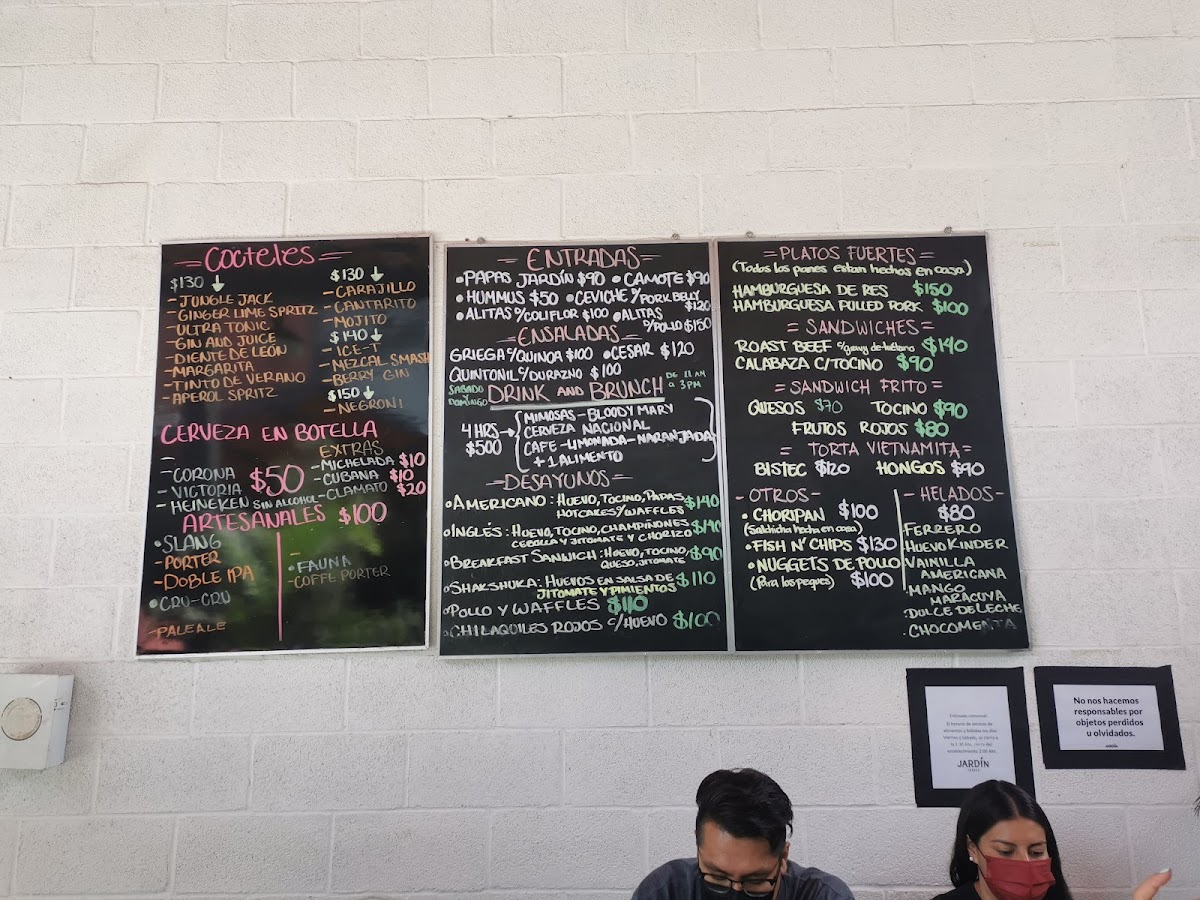 = Cocteles =
$130 ↓
- JUNGLE JACK
- GINGER LIME SPRITZ
- ULTRA TONIC
- GIN AND JUICE
- DIENTE DE LEÓN
- MARGARITA
- TINTO DE VERANO
- APEROL SPRITZ
$130 ↓
- CARAJILLO
- CANTARITO
- MOJITO
$140 ↓
- ICE-T
- MEZCAL SMASH
- BERRY GIN
$150 ↓
- NEGRONI
CERVEZA EN BOTELLA
- CORONA
- VICTORIA
- HEINEKEN SIN ALCOHOL
$50
EXTRAS
- MICHELADA $10
- CUBANA $10
- CLAMATO $20
ARTESANALES $100
• SLANG
- PORTER
- DOBLE IPA
• CRU-CRU
- PALE ALE
• FAUNA
- COFFE PORTER
= ENTRADAS =
• PAPAS JARDÍN $90 • CAMOTE $90
• HUMMUS $50 • CEVICHE C/ PORK BELLY $120
• ALITAS C/COLIFLOR $100 • ALITAS C/POLLO $150
= ENSALADAS =
GRIEGA C/QUINOA $100 • CESAR $120
QUINTONIL C/DURAZNO $100
SABADO Y DOMINGO DRINK AND BRUNCH DE 11 AM A 3 PM
4 HRS → $500
MIMOSAS - BLOODY MARY
CERVEZA NACIONAL
CAFE - LIMONADA - NARANJADA
+ 1 ALIMENTO
= DESAYUNOS =
• AMERICANO: HUEVO, TOCINO, PAPAS $140
HOTCAKES Y/WAFFLES
• INGLÉS: HUEVO, TOCINO, CHAMPIÑONES $140
CEBOLLA Y JITOMATE Y CHORIZO
• BREAKFAST SANWICH: HUEVO, TOCINO, $90
QUESO, JITOMATE
• SHAKSHUKA: HUEVOS EN SALSA DE $110
JITOMATE Y PIMIENTOS
• POLLO Y WAFFLES $110
• CHILAQUILES ROJOS C/HUEVO $100
= PLATOS FUERTES =
(Todos los panes estan hechos en casa)
HAMBURGUESA DE RES $150
HAMBURGUESA PULLED PORK $100
= SANDWICHES =
ROAST BEEF c/gravy de $140
CALABAZA C/TOCINO $90
= SANDWICH FRITO =
QUESOS $70 TOCINO $90
FRUTOS ROJOS $80
= TORTA VIETNAMITA =
BISTEC $120 HONGOS $90
- OTROS -
• CHORIPAN $100
(Salchicha hecha en casa)
• FISH N' CHIPS $130
• NUGGETS DE POLLO
(Para los peques) $100
- HELADOS -
$80
FERRERO
HUEVO KINDER
VAINILLA
AMERICANA
MANGO
MARACUYA
DULCE DE LECHE
CHOCOMENTA
Estimado comensal:
El horario de servicio de
alimentos y bebidas los días
JARDÍN
No nos hacemos
responsables por
objetos perdidos
u olvidados.